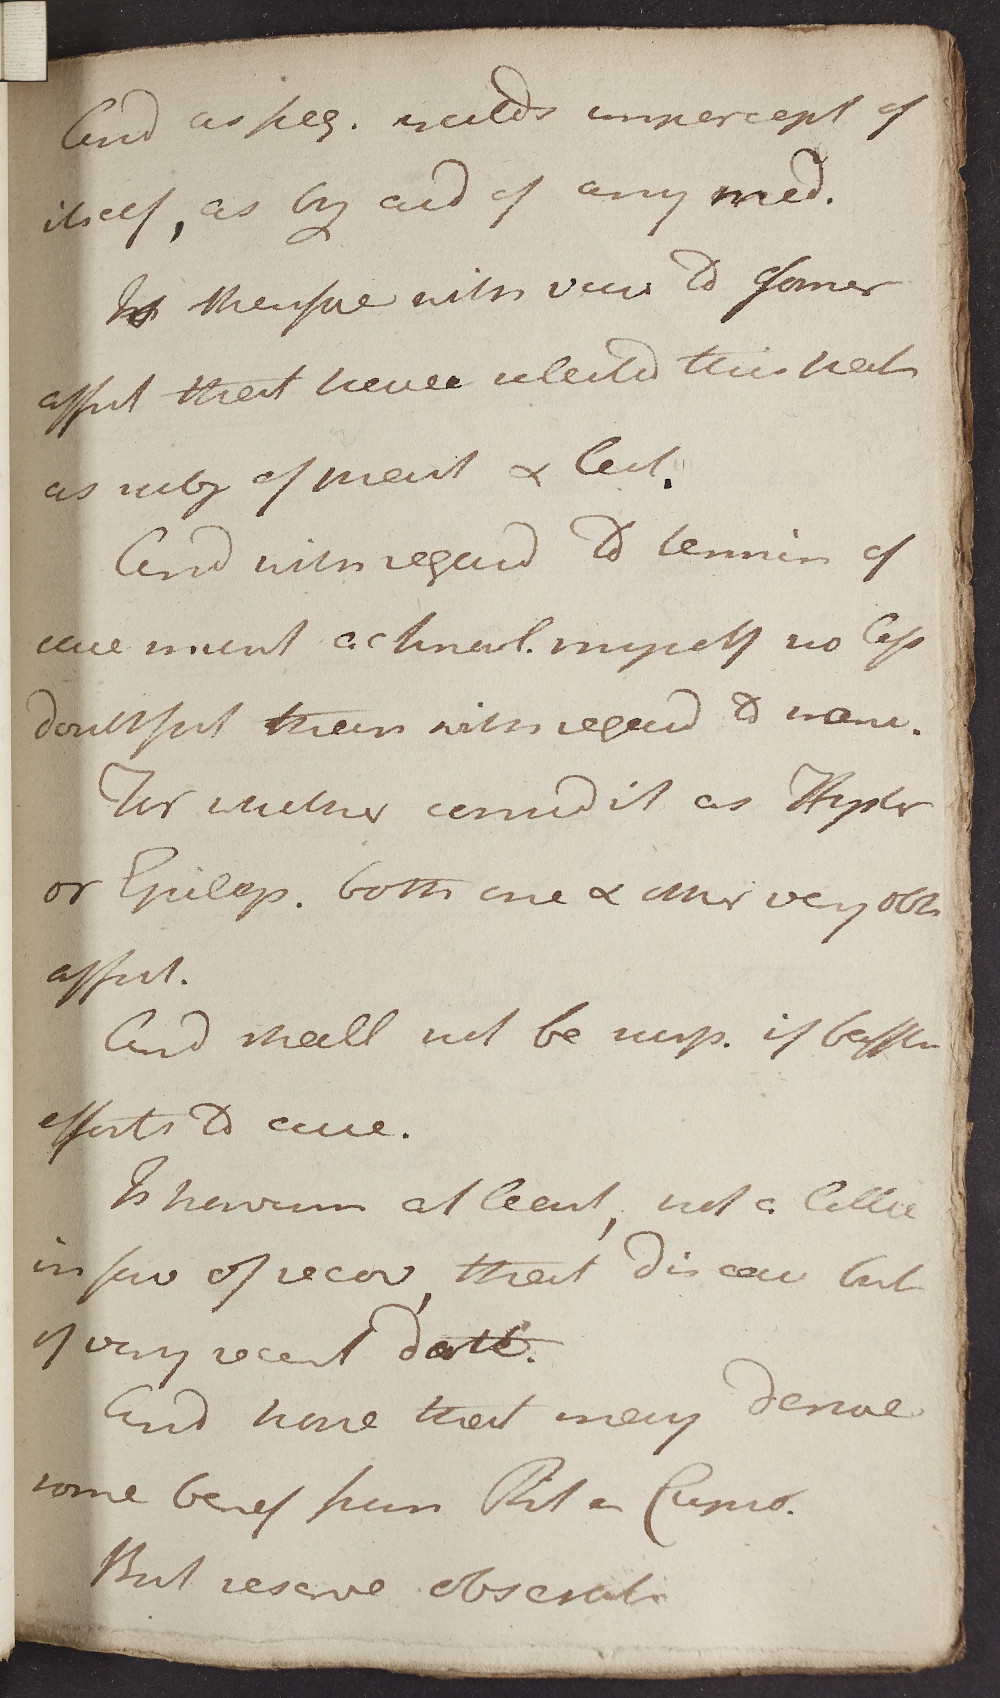 And as freq. yields impercept of
itself, as by aid of any med.
Is therefore with view to former
affect that have selected this pat
as subj of pract & lect.
And with regard to termin of
case must acknowl. myself no less
doubtful than with regard to name.
For whether consid it as Hyster
or Epilep. both one & other very obst
affect.
And shall not be surp. if baffle
efforts to cure.
Is however at least, not a little
in fav of recov, that disease but
of very recent date.
And hope that may derive
some benef from Pil e Cupro.
But reserve observat